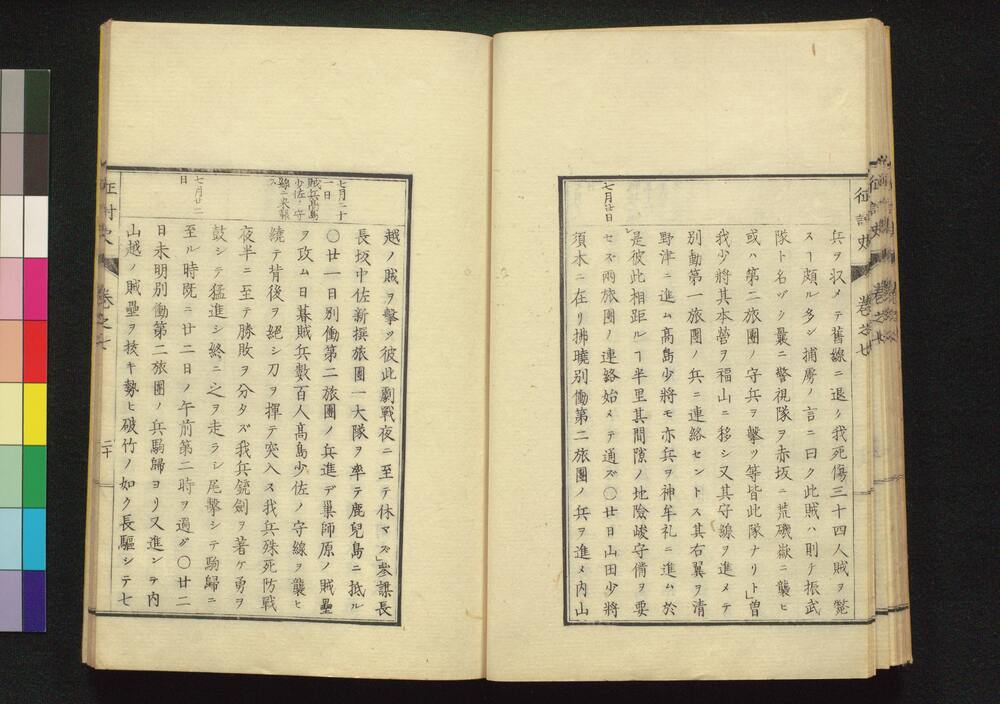 征討史 巻之七
兵ヲ収メテ舊線ニ退ク我死傷三十四人賊ヲ斃
スヿ頗ル多シ捕虜ノ言ニ曰ク此賊ハ則チ振武
隊ト名ヅク曩ニ警視隊ヲ赤坂ニ荒磯嶽ニ襲ヒ
或ハ第二旅團ノ守兵ヲ擊ツ等皆此隊ナリト」曽
我少將其本營ヲ福山ニ移シ又其守線ヲ進メテ
別動第一旅團ノ兵ニ連絡セントス其右翼ヲ清
野津ニ進ム高島少將モ亦兵ヲ神牟礼ニ進ム於
是彼此相距ルヿ半里其間隙ノ地險峻守備ヲ要
七月廿日
セズ兩旅團ノ連絡始メテ通ズ〇廿日山田少將
須木ニ在リ拂曉別働第二旅團ノ兵ヲ進メ内山
越ノ賊ヲ擊ツ彼此劇戰夜ニ至テ休マズ」參謀長
長坂中佐新撰旅團一大隊ヲ率テ鹿兒島ニ抵ル
七月二十
一日
賊兵高島
少佐ノ守
線ニ来襲
ス
〇廿一日別働第二旅團ノ兵進デ巣師原ノ賊壘
ヲ攻ム日暮賊兵數百人高島少佐ノ守線ヲ襲ヒ
繞テ背後ヲ絕シ刀ヲ揮テ突入ス我兵殊死防戰
夜半ニ至テ勝敗ヲ分タズ我兵銃劍ヲ著ケ勇ヲ
鼓シテ猛進シ終ニ之ヲ走ラシ尾擊シテ駒歸ニ
七月廿二
日
至ル時既ニ廿二日ノ午前第二時ヲ過グ〇廿二
日未明別働第二旅團ノ兵駒歸ヨリ又進ンテ内
山越ノ賊壘ヲ抜キ勢ヒ破竹ノ如ク長驅シテ七
征討史 巻之七 二十